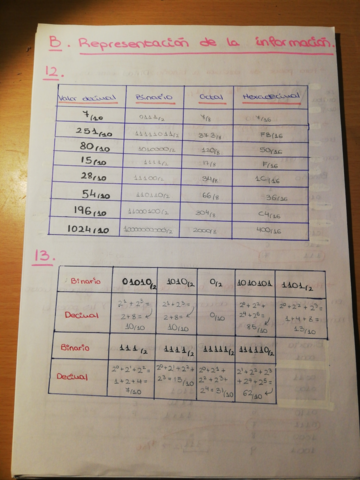 B. Representación de la información.
12.
Valor decimal Binario Octal Hexadecimal
7/10 0111/2 7/8 7/16
251/10 11111011/2 373/8 FB/16
80/10 1010000/2 120/8 50/16
15/10 1111/2 17/8 F/16
28/10 11100/2 34/8 1C/16
54/10 110110/2 66/8 36/16
196/10 11000100/2 304/8 C4/16
1024/10 10000000000/2 2000/8 400/16
13.
Binario 01010/2 1010/2 0/2 1010101 1101/2
Decimal 2+8= 10/10 10/10 0/10 85/10 1+4+8=
Binario 111/2 1111/2 11111/2 111110/2
Decimal 1+2+4= 7/10 15/10 31/10 62/10